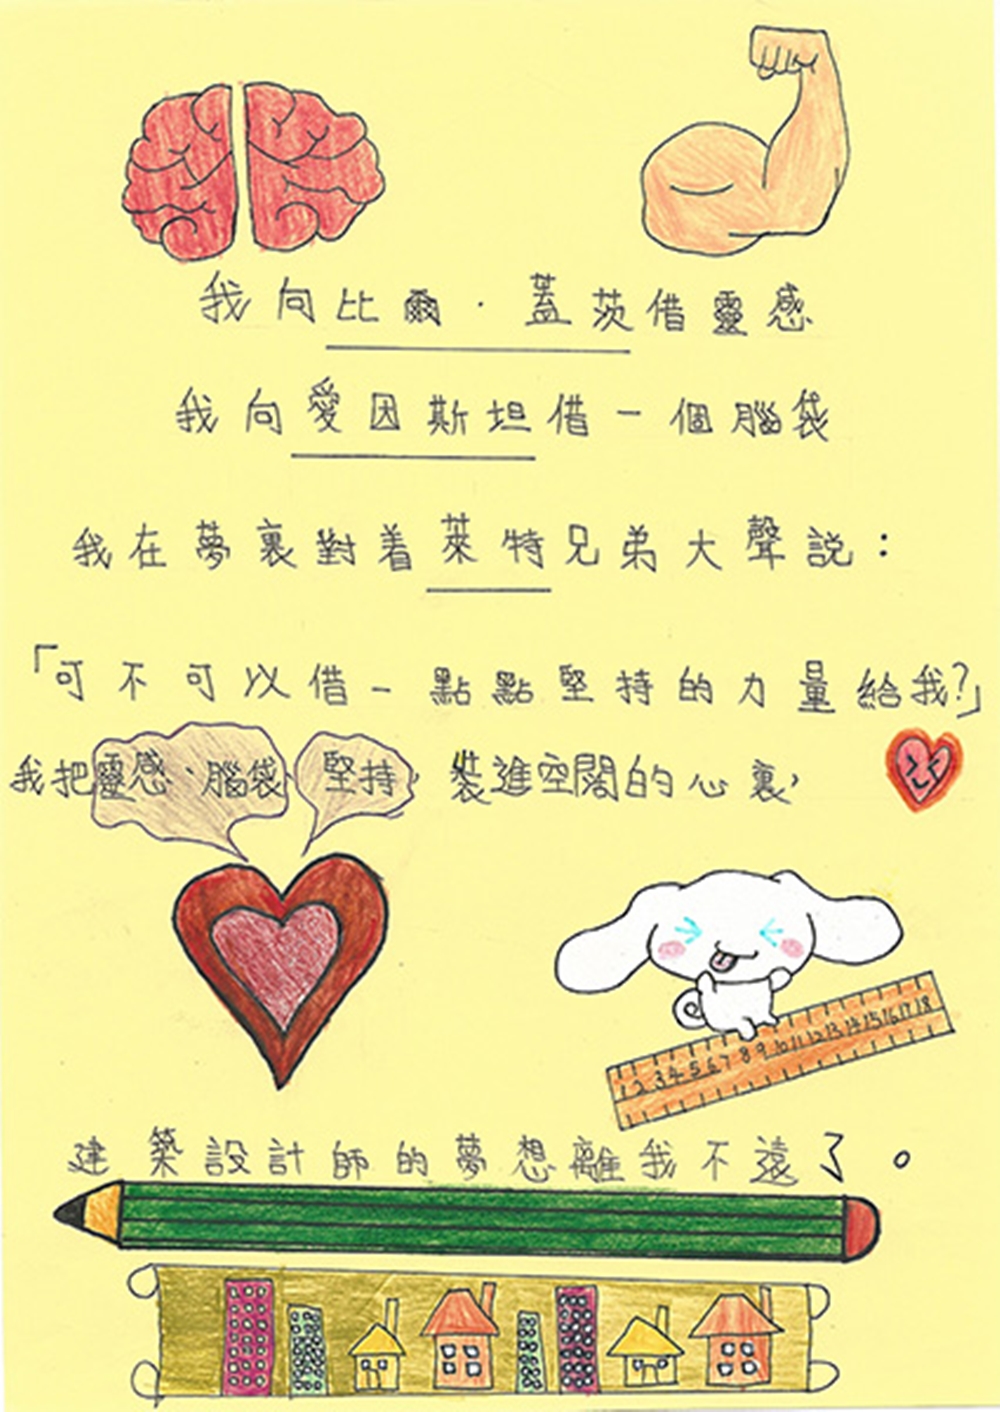 我向比爾·蓋茨借靈感
我向愛因斯坦借一個腦袋
我在夢裏對着萊特兄弟大聲説：
「可不可以借一點點堅持的力量給我?」
我把靈感、腦袋、堅持，裝進空闊的心裏，
1 2 3 4 5 6 7 8 9 10 11 12 13 14 15 16 17 18
建築設計師的夢想離我不遠了。